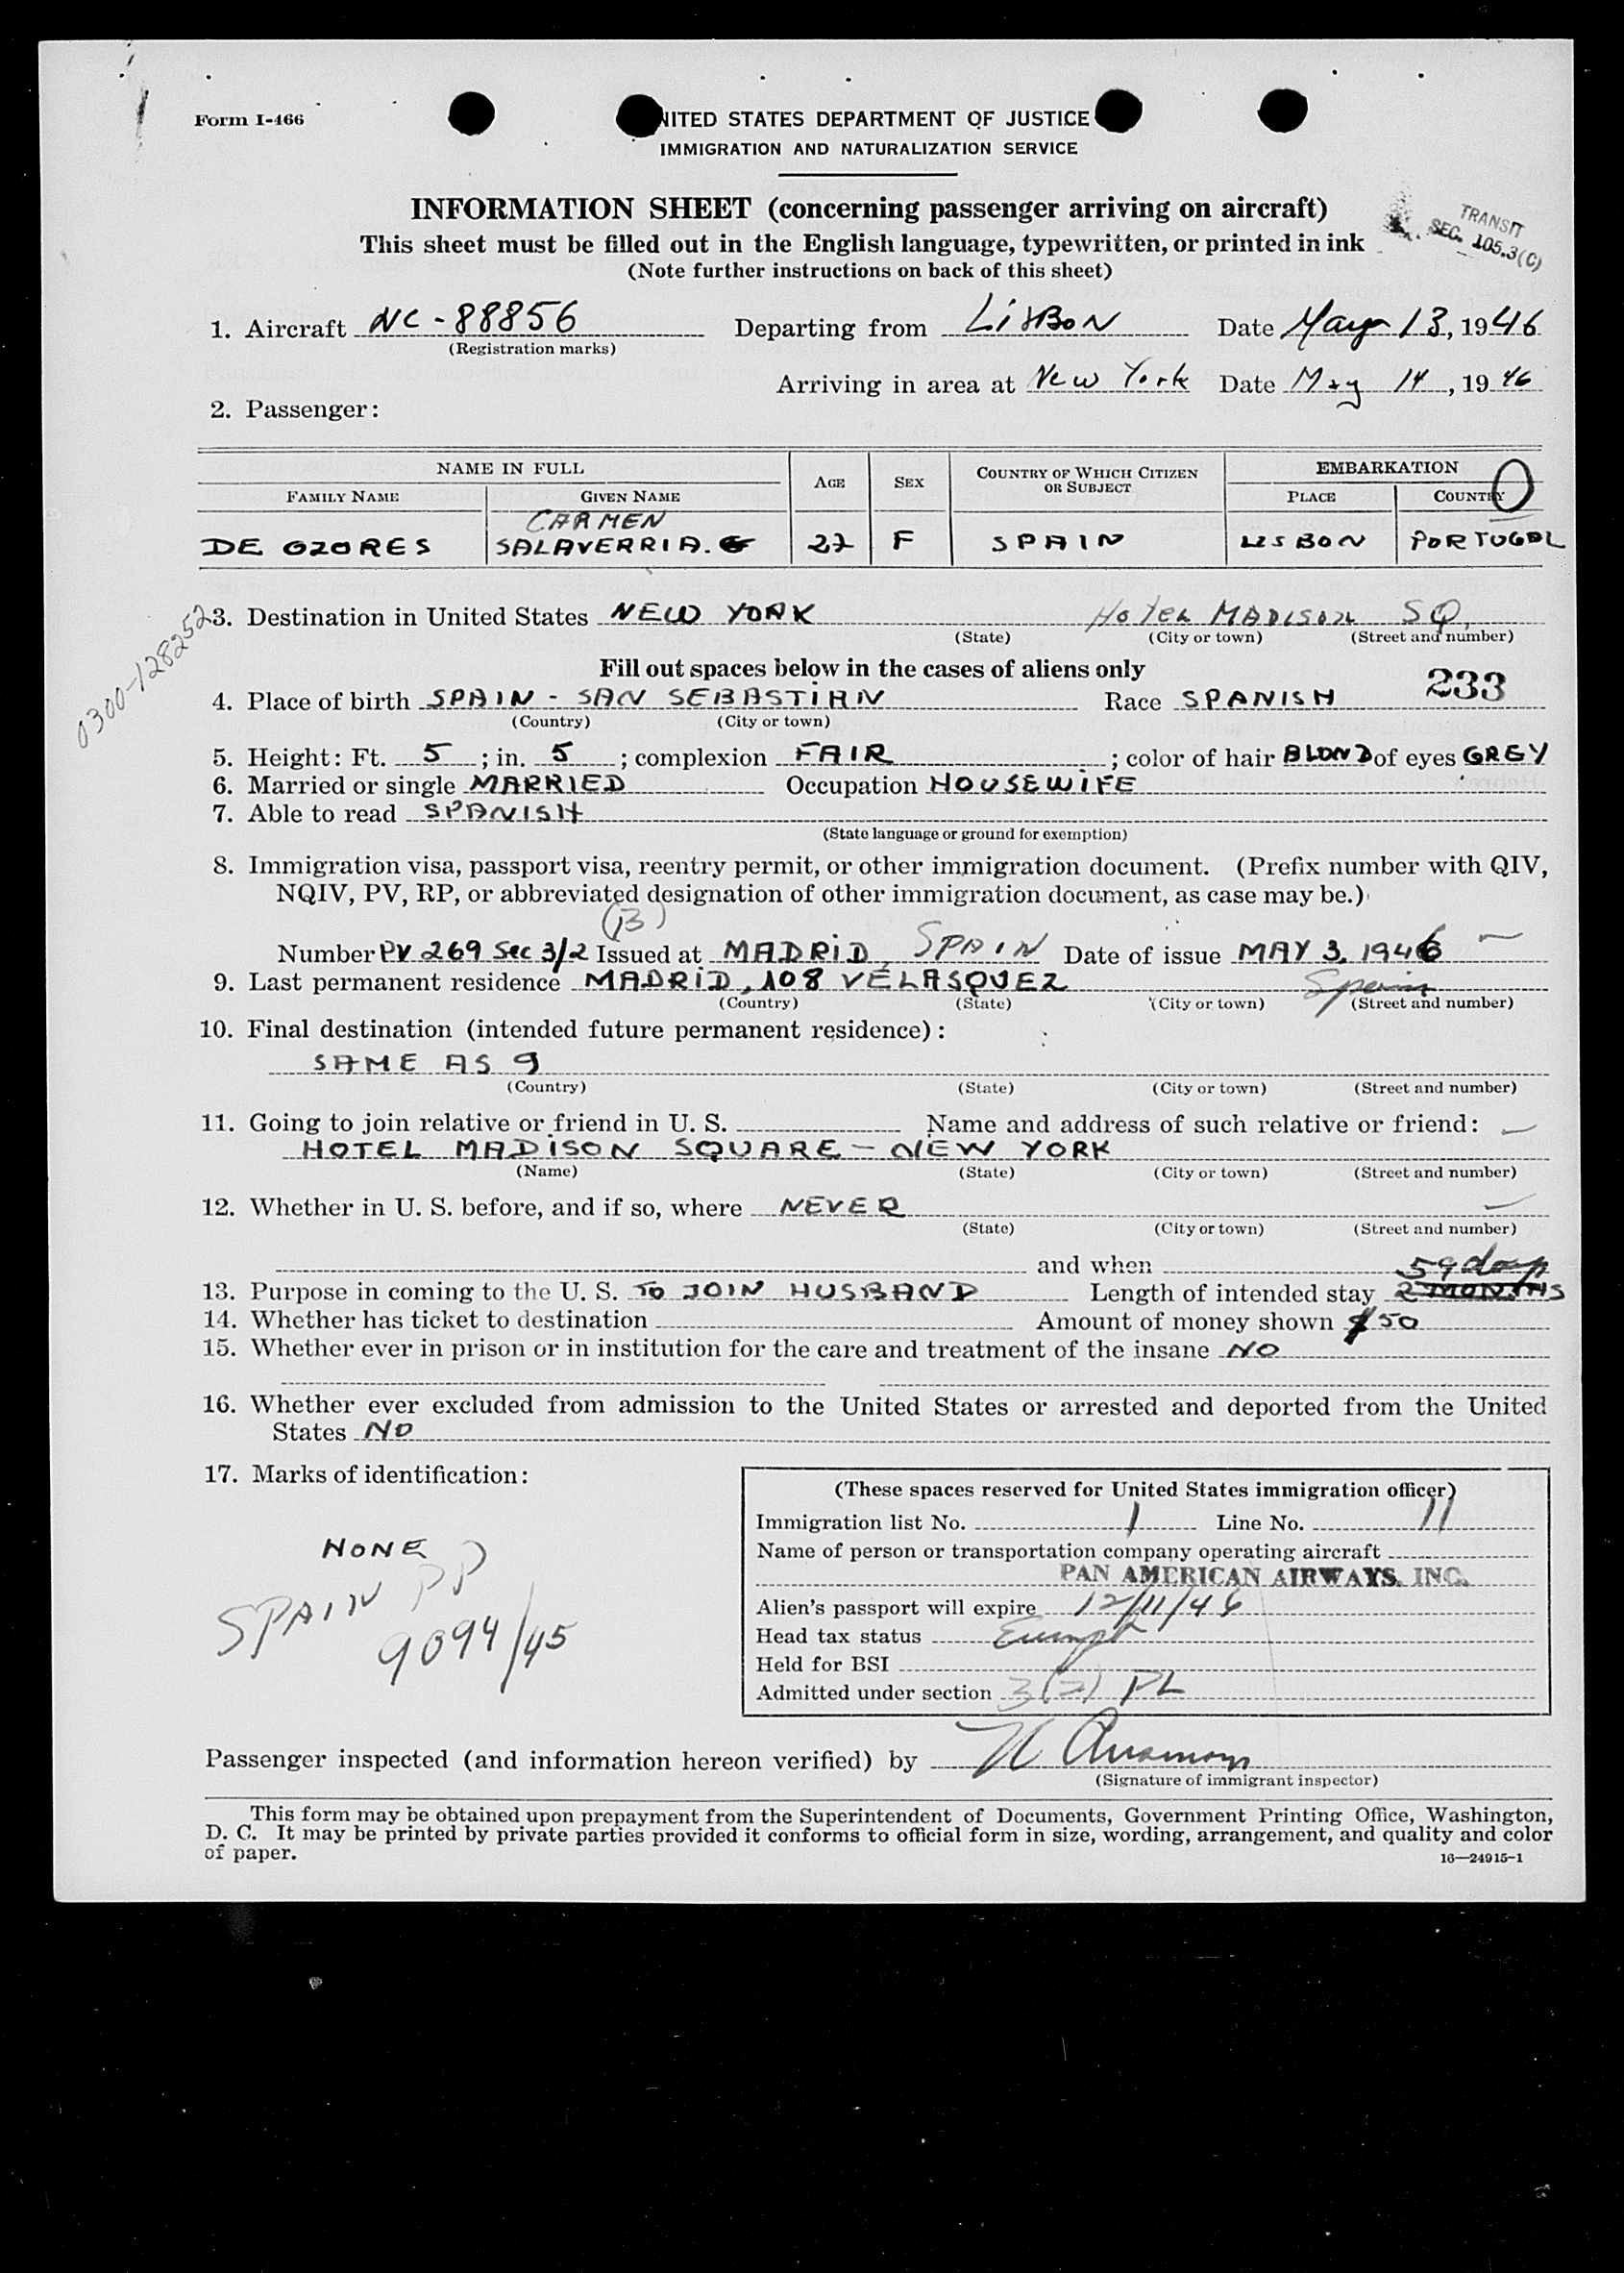 Form I-466
UNITED STATES DEPARTMENT OF JUSTICE
IMMIGRATION AND NATURALIZATION SERVICE
INFORMATION SHEET (concerning passenger arriving on aircraft)
TRANSIT
SEC. 105.3(C)
This sheet must be filled out in the English language, typewritten, or printed in ink
(Note further instructions on back of this sheet)
1. Aircraft NC-88856 Departing from LISBON Date May 13, 1946
(Registration marks)
Arriving in area at New York Date May 14, 1946
2. Passenger:
NAME IN FULL AGE SEX COUNTRY OF WHICH CITIZEN OR SUBJECT EMBARKATION
FAMILY NAME GIVEN NAME PLACE COUNTRY
CARMEN
DE OZORES SALAVERRIA. 22 F SPAIN LISBON PORTUGAL
0300-128252
3. Destination in United States NEW YORK HOTEL MADISON SQ.
(State) (City or town) (Street and number)
Fill out spaces below in the cases of aliens only
233
4. Place of birth SPAIN - SAN SEBASTIAN Race SPANISH
(Country) (City or town)
5. Height: Ft. 5; in. 5; complexion FAIR; color of hair BLOND of eyes GREY
6. Married or single MARRIED Occupation HOUSEWIFE
7. Able to read SPANISH
(State language or ground for exemption)
8. Immigration visa, passport visa, reentry permit, or other immigration document. (Prefix number with QIV,
NQIV, PV, RP, or abbreviated designation of other immigration document, as case may be.)
(B)
Number PV 269 Sec 3/2 Issued at MADRID, SPAIN Date of issue MAY 3, 1946
9. Last permanent residence MADRID, 108 VELASQUEZ Spain
(Country) (State) (City or town) (Street and number)
10. Final destination (intended future permanent residence):
SAME AS 9
(Country) (State) (City or town) (Street and number)
11. Going to join relative or friend in U. S. Name and address of such relative or friend:
HOTEL MADISON SQUARE - NEW YORK
(Name) (State) (City or town) (Street and number)
12. Whether in U. S. before, and if so, where NEVER
(State) (City or town) (Street and number)
and when
59 days
13. Purpose in coming to the U. S. TO JOIN HUSBAND Length of intended stay 2 MONTHS
14. Whether has ticket to destination Amount of money shown $50
15. Whether ever in prison or in institution for the care and treatment of the insane NO
16. Whether ever excluded from admission to the United States or arrested and deported from the United
States NO
17. Marks of identification:
NONE
SPAIN PP
9094/45
(These spaces reserved for United States immigration officer)
Immigration list No. 1 Line No. 11
Name of person or transportation company operating aircraft
PAN AMERICAN AIRWAYS, INC.
Alien's passport will expire 12/11/46
Head tax status Exempt
Held for BSI
Admitted under section 3(2) PL
Passenger inspected (and information hereon verified) by
(Signature of immigrant inspector)
This form may be obtained upon prepayment from the Superintendent of Documents, Government Printing Office, Washington,
D. C. It may be printed by private parties provided it conforms to official form in size, wording, arrangement, and quality and color
of paper.
16—24915-1